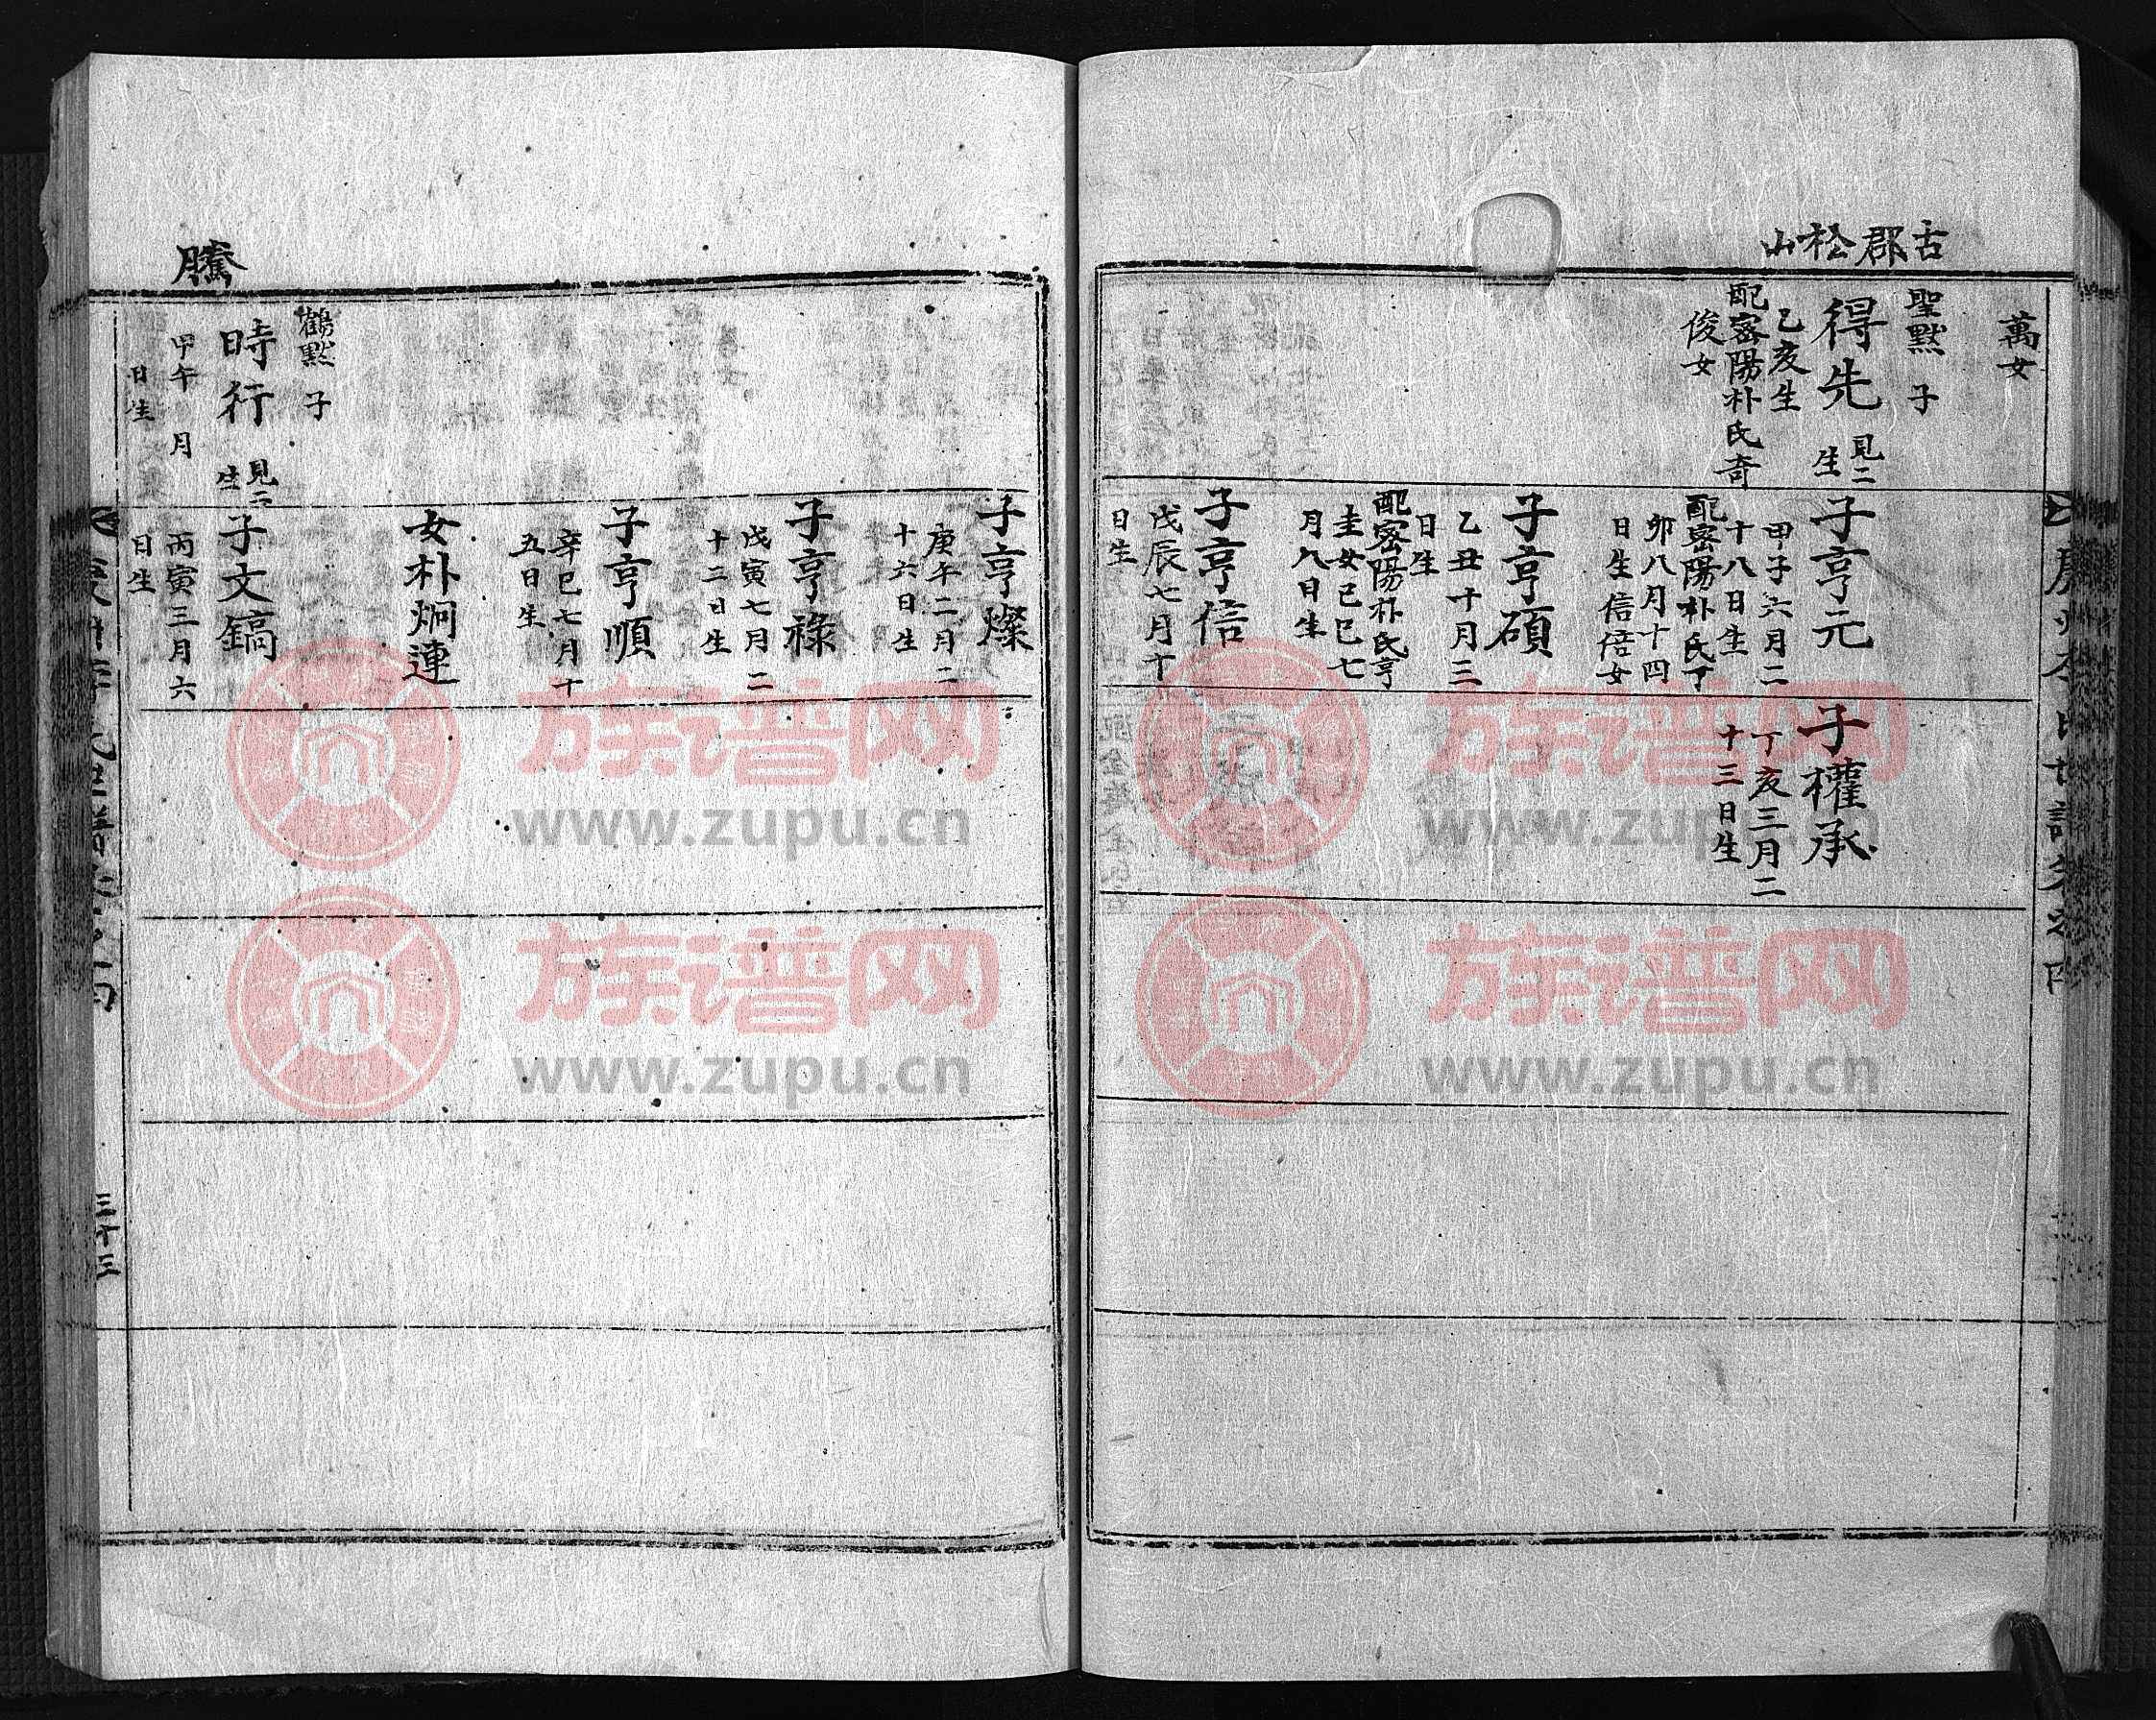 古郡松山
萬女
聖默 子
得先 見二
生
乙亥生
配密陽朴氏奇
俊女
子亨元
甲子六月二
十八日生
配密陽朴氏丁
卯八月十四
日生信倍女
子亨碩
乙丑十月三
日生
配密陽朴氏亨
圭女己巳七
月八日生
子亨信
戊辰七月十
日生
子權承
丁亥三月二
十三日生
子亨燦
庚午二月二
十六日生
子亨祿
戊寅七月二
十二日生
子亨順
辛巳七月十
五日生
女朴炯連
騰
鶴默 子
時行 見二
生
甲午 月
日生
子文鎬
丙寅三月六
日生
三十三
族谱网
www.zupu.cn
族谱网
www.zupu.cn
族谱网
www.zupu.cn
族谱网
www.zupu.cn